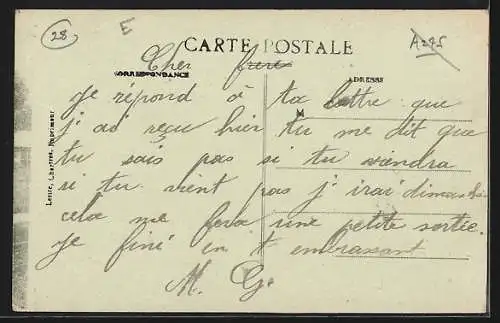 28
E
A295
CARTE POSTALE
CORRESPONDANCE
ADRESSE
Cher frere
Je répond à ta lettre que
j'ai reçu hier tu me dit que
tu sais pas si tu viendra
si tu vient pas j'irai dimanche
cela me fera une petite sortie.
Je finè en t embrassant
M. G.
Lester, Chartres, Imprimeur